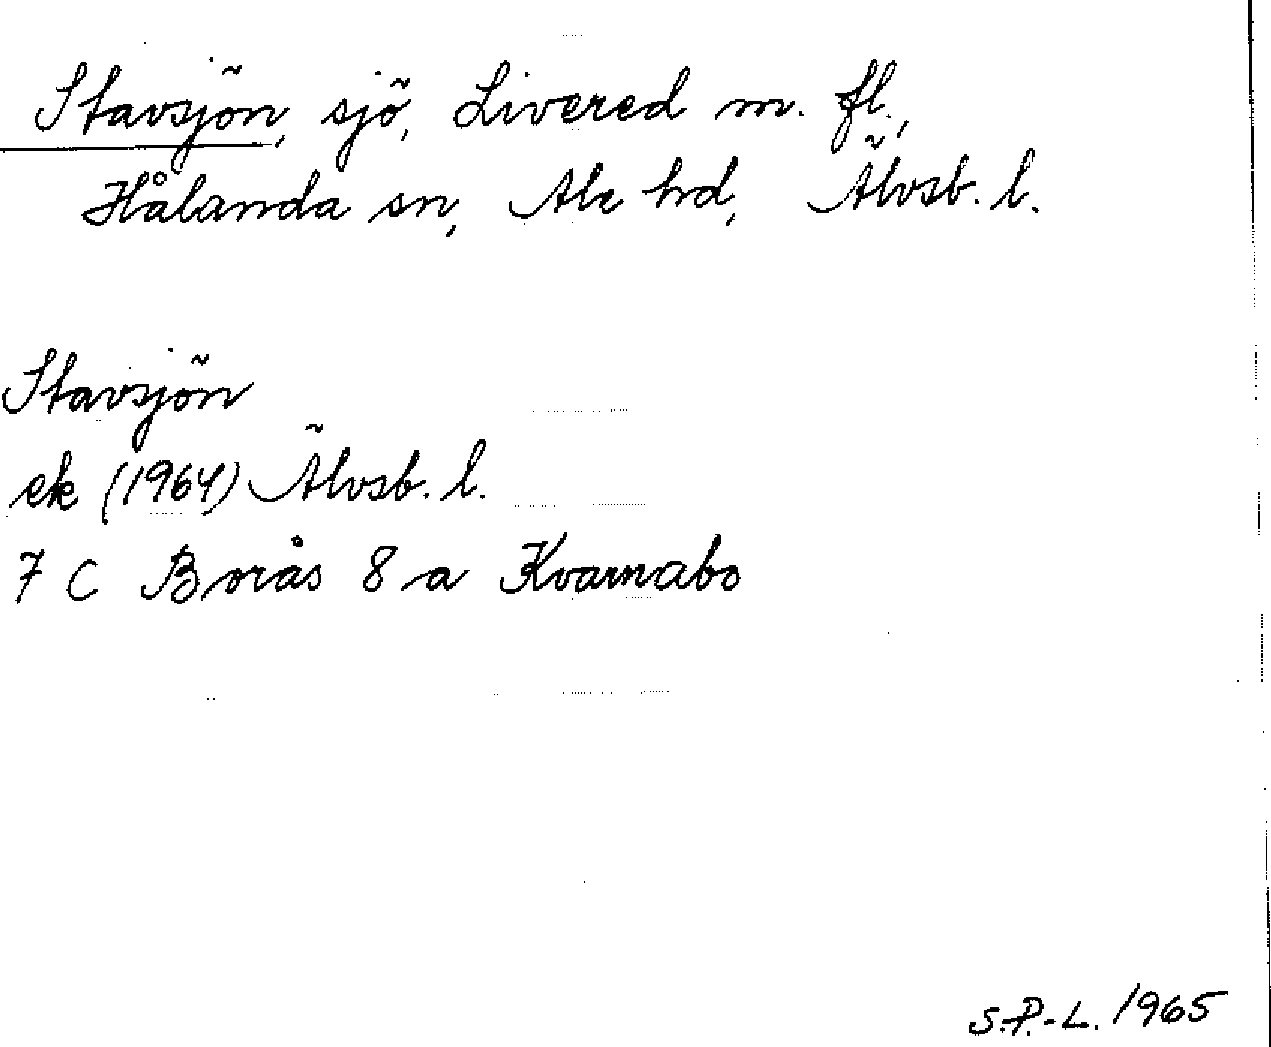 Stavsjön, sjö, Livered m. fl.,
Hålanda sn, Ale hd, Älvsb. l.
Stavsjön
ek (1964) Älvsb. l.
7 C Borås 8 a Kvarnabo
S.P.-L. 1965